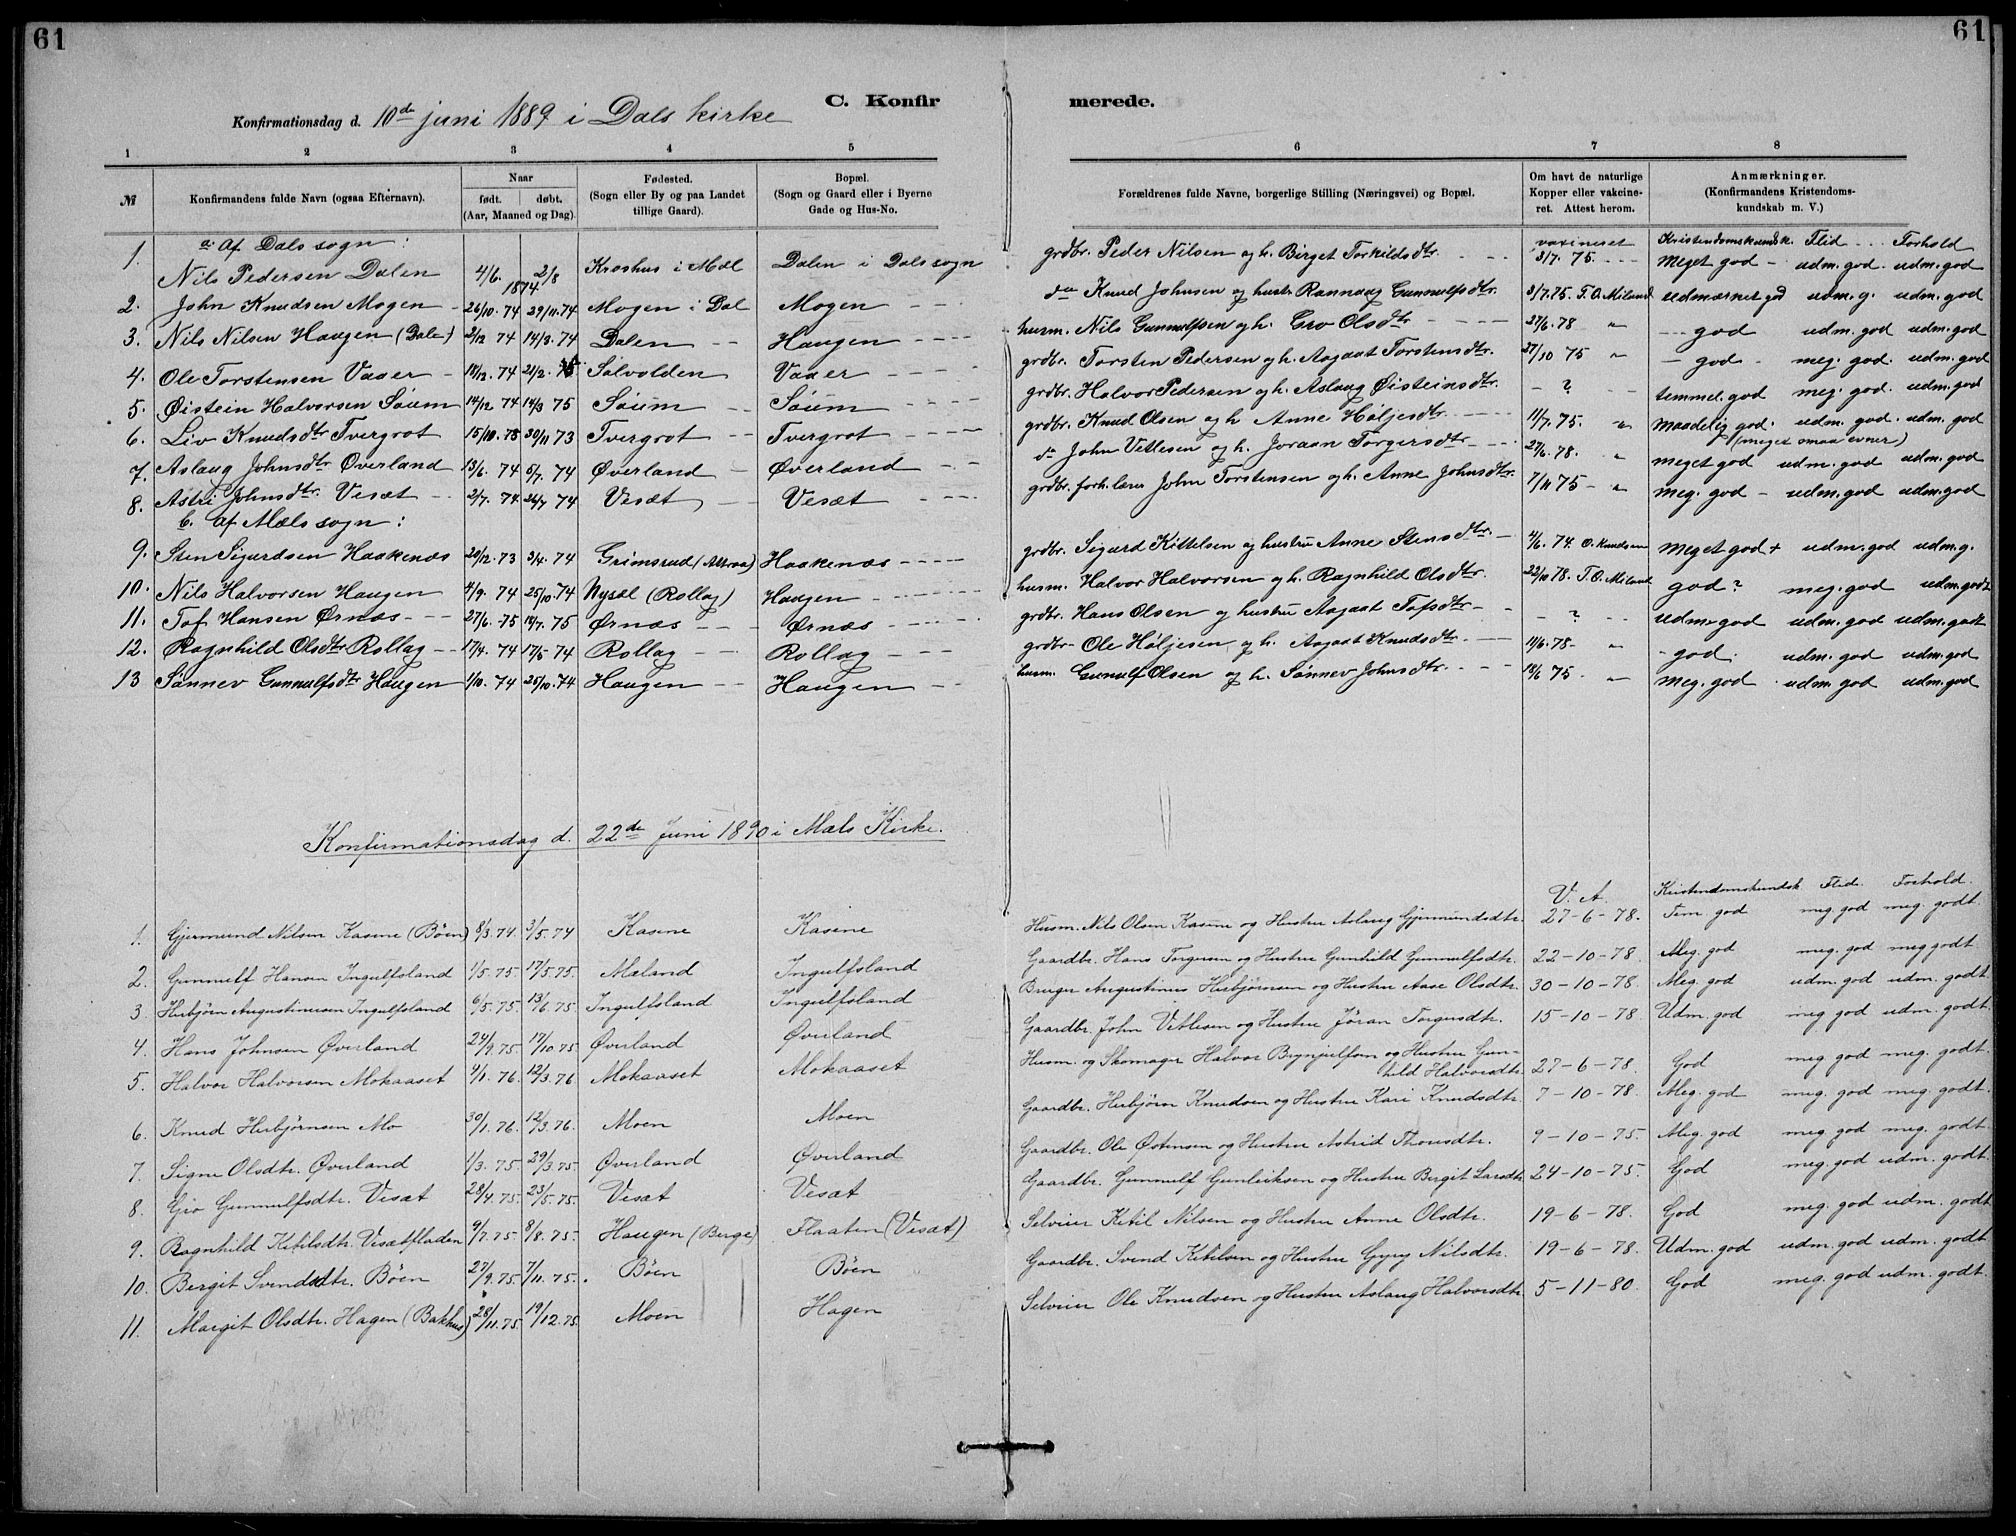 61
61
C. Konfir
merede.
Konfirmationsdag d. 10de juni 1889 i Dals kirke
1 2 3 4 5 6 7 8
№ Konfirmandens fulde Navn (ogsaa Efternavn). Naar født. døbt. (Aar, Maaned og Dag). Fødested. (Sogn eller By og paa Landet tillige Gaard). Bopæl. (Sogn og Gaard eller i Byerne Gade og Hus-No. Forældrenes fulde Navne, borgerlige Stilling (Næringsvei) og Bopæl. Om havt de naturlige Kopper eller vakcineret. Attest herom. Anmærkninger. (Konfirmandens Kristendomskundskab m. V.)
a. af Dals sogn: vaxineret Kristendomskundsk. Flid Forhold
1. Nils Pedersen Dalen 4/6. 2/8 1874 Kroshus i Mæl Dalen i Dals sogn grdbr. Peder Nilsen og h. Birget Torkildsdtr. 3/7. 75. meget god - udm. god. udm. god
2. John Knudsen Mogen 26/10. 74 29/11. 74 Mogen i Dal Mogen do Knud Johnsen og hustr. Rannaug Gunnulfsdtr. 3/7. 75. T. O. Miland udmærket god udm. g. udm. god
3. Nils Nilsen Haugen (Dalen) 2/12 74 14/3. 74 Dalen Haugen husm. Nils Gunnulfsen og h. Gro Olsdtr 27/6. 78 " god udm. god udm. god
4. Ole Torstensen Vaaer 18/12. 74 21/2. 75 Sølvolden Vaaer grdbr. Torsten Pedersen og h. Aagaat Torstensdtr. 27/10 75 " god - meg. god. udm. god
5. Øistein Halvorsen Søum 14/12 74 14/3 75 Søum Søum grdbr. Halvor Pedersen og h. Aslaug Øisteinsdtr. - ? temmel. god meg. god. udm. god
6. Liv Knudsdtr Tvergrot 15/10. 73 30/11 73 Tvergrot Tvergrot grdbr. Knud Olsen og h Anne Høljesdtr. 11/7. 75. " maadelig god. udm. god. udm. god (meget smaa evner)
7. Aslaug Johnsdtr Øverland 13/6. 74 5/7. 74 Øverland Øverland do John Vetlesen og h. Joraan Torgersdtr 27/6. 78. " meget god udm. god udm. god
8. Astri Johnsdtr. Vesæt 2/7. 74 26/7 74 Vesæt Vesæt grdbr. forh. lærer John Torstensen og h. Anne Johnsdtr. 7/11 75 - " meg. god - udm. god udm. god
b. af Mæls sogn:
9. Sten Sigurdsen Haakenæs 20/12. 73 3/4. 74 Grimsrud (Attraa) Haakenæs grdbr. Sigurd Kittelsen og hustru Anne Stensdtr. 4/6. 74. O. Knudsen meget god + udm. god udm. g.
10. Nils Halvorsen Haugen 4/9. 74 25/10. 74 Nysæl (Rollag) Haugen husm. Halvor Halvorsen og h. Ragnhild Olsdtr. 22/10 78. T. O. Miland god? meg. god udm. godt
11. Tof Hansen Ørnæs 27/6. 75 18/7. 75 Ørnæs Ørnæs grdbr. Hans Olsen og hustru Aagaat Tofsdtr - ? udm. god udm. god udm. godt
12. Ragnhild Olsdtr. Rollag 17/4. 74 17/5 74 Rollag Rollag grdbr Ole Høljesen og h. Aagaat Knudsdtr. 18/6. 78 - " god. udm. god udm. god
13 Sønnev Gunnulfsdtr Haugen 1/10. 74 25/10. 74 Haugen Haugen husm. Gunnulf Olsen og h. Sønnev Johnsdtr. 18/6 75. " meg. god udm. god udm. god
Konfirmationsdag d. 22de Juni 1890 i Mæls Kirke.
V. A. Kristendomskundsk. Flid. Forhold.
1. Gjermund Nilsen Kasine (Bøen) 8/3. 74. 3/5. 74 Kasine Kasine Husm. Nils Olsen Kasine og Hustru Aslaug Gjermundsdtr. 27-6-78. Tem. god meg. god meg. godt.
2. Gunnulf Hansen Ingulfsland 1/5. 75. 17/5. 75. Mæland Ingulfsland Gaardbr. Hans Torgersen og Hustru Gunhild Gunnulfsdtr. 22-10-78. Meg. god meg. god meg godt.
3. Herbjørn Augustinusen Ingulfsland 6/5. 75 13/6. 75 Ingulfsland Ingulfsland Bruger Augustinus Herbjørnsen og Hustru Aase Olsdtr. 30-10-78. Meg. god udm. god udm. godt.
4. Hans Johnsen Øverland 24/9. 75. 17/10. 75 Øverland Øverland Gaardbr. John Vetlesen og Hustru Jøran Torgersdtr. 15-10-78. Udm. god meg god udm. godt.
5. Halvor Halvorsen Mokaaset 9/1. 76. 12/3. 76 Mokaaset Mokaaset Husm. og Skomager Halvor Brynjulfsen og Hustru Gunhild Halvorsdtr. 27-6-78. God meg god meg. godt.
6. Knud Herbjørnsen Mo 30/1. 76. 12/3. 76. Moen Moen Gaardbr. Herbjørn Knudsen og Hustru Kari Knudsdtr. 7-10-78. Meg. god meg. god meg. godt.
7. Signe Olsdtr. Øverland 1/3. 75 29/3. 75. Øverland Øverland Gaardbr. Ole Østensen og Hustru Astrid Thorsdtr. 9-10-75. Meg. god meg. god meg. godt.
8. Gro Gunnulfsdtr. Vesæt 28/4. 75. 23/5. 75. Vesæt Vesæt Gaardbr. Gunnulf Gunleiksen og Hustru Bergit Larsdtr. 24-10-75. God meg. god udm. godt.
9. Ragnhild Ketilsdtr. Vesætfladen 9/7. 75 8/8. 75. Haugen (Berge) Flaaten (Vesæt) Selveier Ketil Nilsen og Hustru Anne Olsdtr. 19-6-78. God meg. god udm. godt.
10. Bergit Svendsdtr. Bøen 27/9. 75 7/11. 75. Bøen Bøen Gaardbr. Svend Ketilsen og Hustru Gyry Nilsdtr. 19-6-78. Udm. god udm. god udm. godt.
11. Margit Olsdtr. Hagen (Bakhus) 28/11. 75 19/12. 75. Moen Hagen Selveier Ole Knudsen og Hustru Aslaug Halvorsdtr. 5-11-80. God meg. god udm. godt.